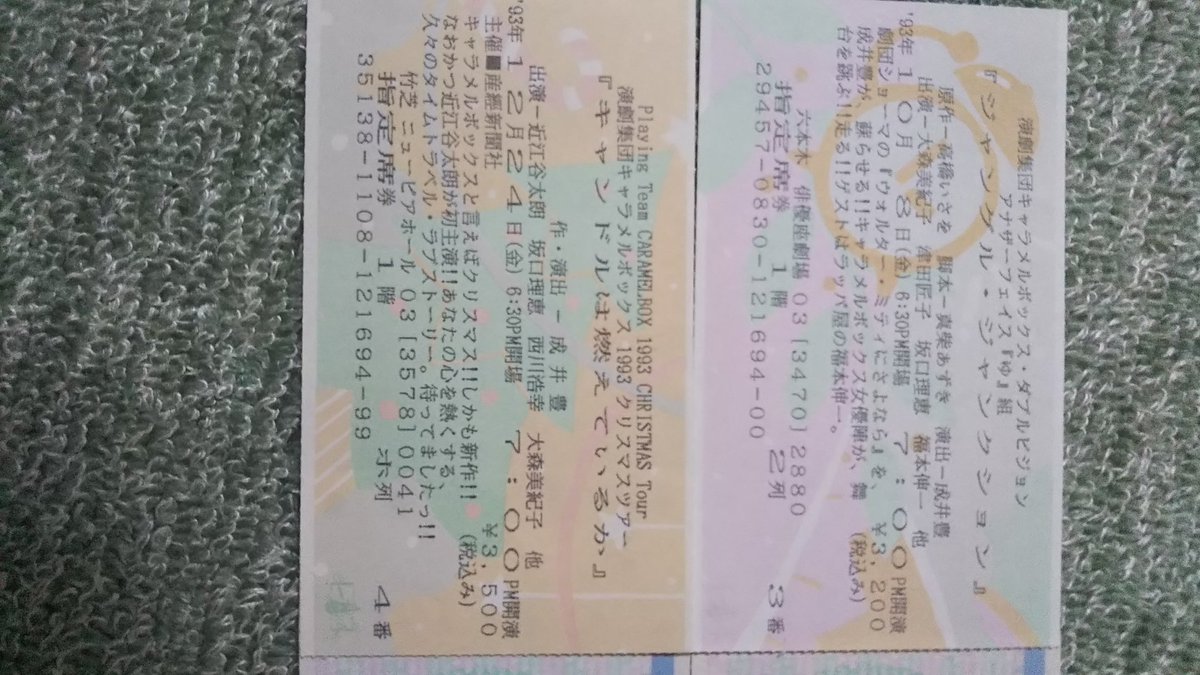 演劇集団キャラメルボックス・ダブルビジョン
アナザーフェイス『ゆ』組
『ジャングル・ジャンクション』
原作−高橋いさを 脚本−真柴あずき 演出−成井豊
出演−大森美紀子 津田匠子 坂口理恵 福本伸一 他
'93年10月 8日(金) 6:30PM開場 7:00PM開演
劇団ショーマの『ウォルター・ミティにさよなら』を、 ¥3,200
成井豊が、蘇らせる!!キャラメルボックス女優陣が、舞 (税込み)
台を跳ぶ!!走る!!ゲストはラッパ屋の福本伸一。
六本木 俳優座劇場 03[3470]2880
指定席券 1階 2列 3番
29457-0830-121694-00
Playing Team CARAMELBOX 1993 CHRISTMAS Tour
演劇集団キャラメルボックス 1993 クリスマスツアー
『キャンドルは燃えているか』
作・演出 − 成井豊
出演−近江谷太朗 坂口理恵 西川浩幸 大森美紀子 他
'93年12月24日(金) 6:30PM開場 7:00PM開演
主催■産經新聞社 ¥3,500
キャラメルボックスと言えばクリスマス!!しかも新作!! (税込み)
なおかつ近江谷太朗が初主演!!あなたの心を熱くする、
久々のタイムトラベル・ラブストーリー。待ってましたっ!!
竹芝 ニューピアホール 03[3578]0041
指定席券 1階 ホ列 4番
35138-1108-121694-99